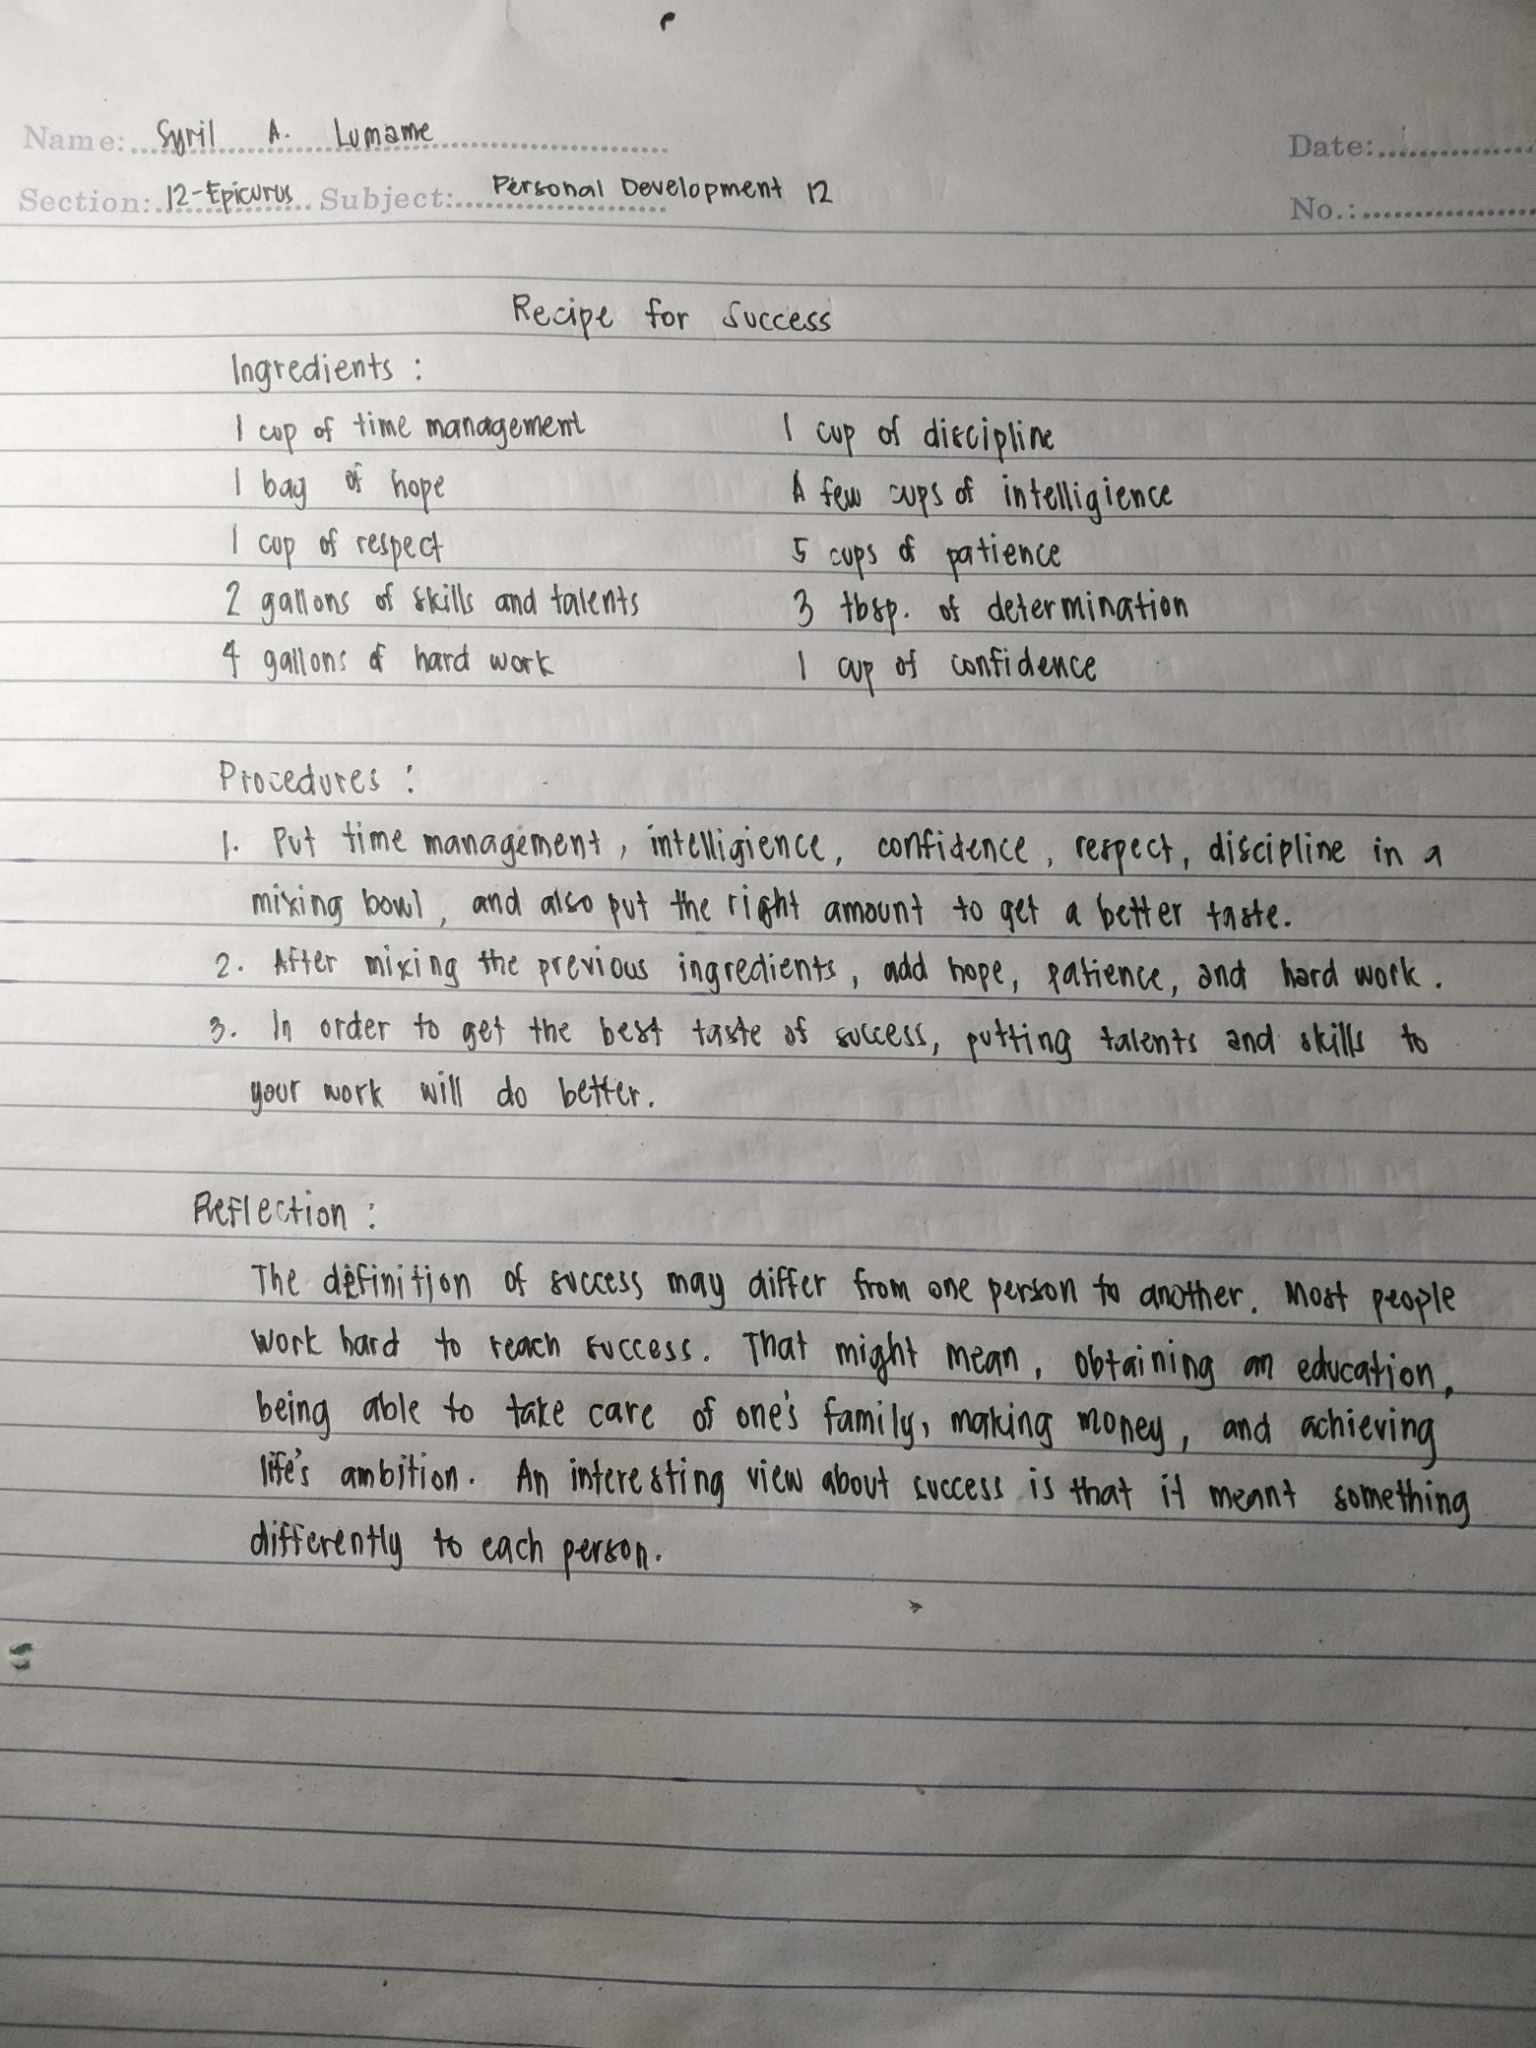 Name: Syril A. Lumame Date:
Section: 12-Epicurus Subject: Personal Development 12 No.:
Recipe for Success
Ingredients :
1 cup of time management 1 cup of discipline
1 bag of hope A few cups of intelligience
1 cup of respect 5 cups of patience
2 gallons of skills and talents 3 tbsp. of determination
4 gallons of hard work 1 cup of confidence
Procedures :
1. Put time management, intelligience, confidence, respect, discipline in a
mixing bowl, and also put the right amount to get a better taste.
2. After mixing the previous ingredients, add hope, patience, and hard work.
3. In order to get the best taste of success, putting talents and skills to
your work will do better.
Reflection :
The definition of success may differ from one person to another. Most people
work hard to reach success. That might mean, obtaining an education,
being able to take care of one's family, making money, and achieving
life's ambition. An interesting view about success is that it meant something
differently to each person.